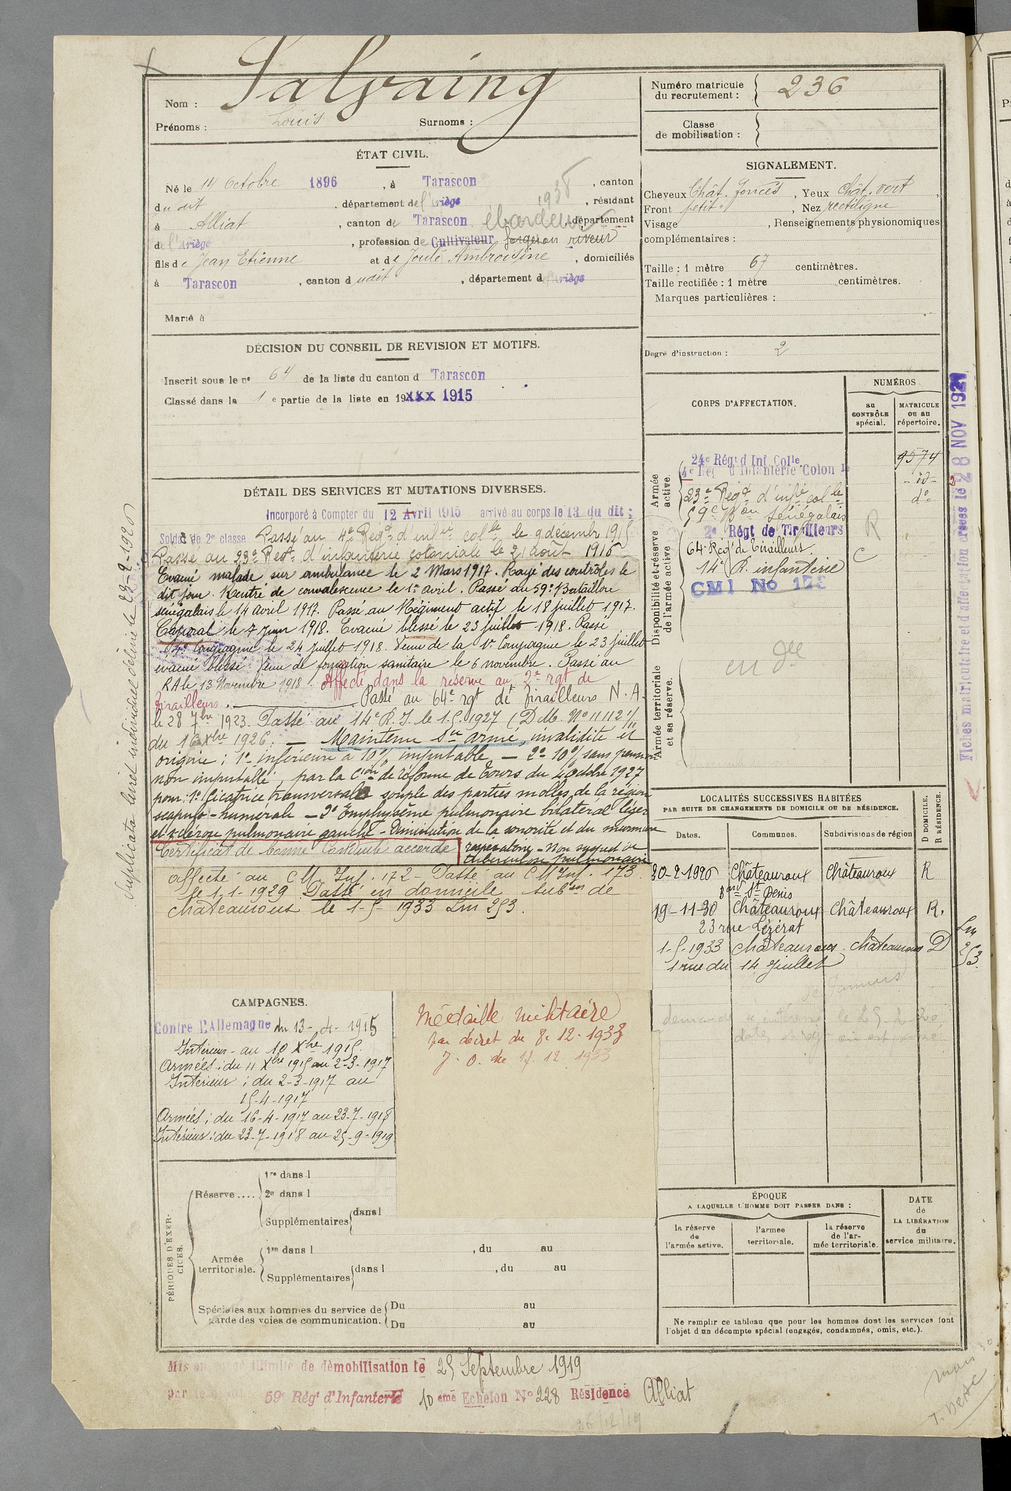 Salvaing
Nom :
Prénoms : Louis Surnoms :
Numéro matricule
du recrutement : 236
Classe
de mobilisation :
ÉTAT CIVIL.
Né le 14 Octobre 1896, à Tarascon, canton
dudit, département de l'Ariège, résidant
1938
à Alliat, canton de Tarascon département
de l'Ariège, profession de Cultivateur forgeron riveur
fils de Jean Etienne et de Joulé Ambroisine, domiciliés
à Tarascon, canton dudit, département d l'Ariège
Marié à
SIGNALEMENT.
Cheveux Chât. foncés, Yeux Chât. vert,
Front petit, Nez rectiligne
Visage , Renseignements physionomiques
complémentaires :
Taille : 1 mètre 67 centimètres.
Taille rectifiée : 1 mètre centimètres.
Marques particulières :
Degré d'instruction : 2
DÉCISION DU CONSEIL DE REVISION ET MOTIFS.
Inscrit sous le n° 64 de la liste du canton d Tarascon
Classé dans la 1e partie de la liste en 19xxx 1915
CORPS D'AFFECTATION.
NUMÉROS
au
CONTRÔLE
spécial.
MATRICULE
OU AU
répertoire.
Armée
active.
24e Régt d Inf Colle 9574
4e Rég d'Infanterie Colon le - id -
23e Régt d'infie colle do
59e Bon Sénégalais
Disponibilité et réserve
de l'armée active.
2e Régt de Tirailleurs R
64e Régt de Tirailleurs
14e R. infanterie C
CMI No 173
Armée territoriale
et sa réserve.
en dle
Fiches matriculaire et d'affectation dressées le 28 NOV 192
DÉTAIL DES SERVICES ET MUTATIONS DIVERSES.
Incorporé à Compter du 12 Avril 1915 arrivé au corps le 13 du dit ;
Soldat de 2e classe Passé au 4e Régt d'infie colle le 9 décembre 1915
Passé au 23e Regt d'infanterie coloniale le 21 Août 1916
Evacué malade sur ambulance le 2 Mars 1917. Rayé des contrôles le
dit jour. Rentré de convalescence le 1er avril. Passé au 59e Bataillon
sénégalais le 14 avril 1917. Passé au Régiment actif le 18 juillet 1917.
Caporal le 7 juin 1918. Evacué blessé le 23 juillet 1918. Passé
Compagnie le 24 juillet 1918. Venu de la Vè Compagnie le 23 juillet
évacué blessé. Venu de formation sanitaire le 6 novembre. Passé au
RA le 13 Novembre 1918. Affecté dans la réserve au 2e rgt de
tirailleurs. Passé au 64e rgt de tirailleurs N.A.
le 28 7bre 1923. Passé au 14e R.I. le 1.5.1927 (D.M. No 11112 1/11
du 16 Xbre 1926. — Maintenu Sce armé, invalidité et
origine : 1° inférieure à 10% imputable, — 2° 10% sans pension
non imputable, par la Cion de réforme de Tours du 4 octobre 1927
pour : 1° Cicatrice transversale souple des parties molles de la région
scapulo-humérale — 2° Emphysème pulmonaire bilatéral léger
et sclérose pulmonaire gauche - Diminution de la sonorité et du murmure
Certificat de bonne conduite accordé respiratoire - Non suspect de
tuberculose pulmonaire
Affecté au CM Inf. 172 - Passé au CM Inf. 173.
le 1.1.1929. Passé en domicile subon de
Chateauroux le 1-5-1933 Lm 253.
Duplicata livret individuel délivré le 23-9-1920
LOCALITÉS SUCCESSIVES HABITÉES
PAR SUITE DE CHANGEMENTS DE DOMICILE OU DE RÉSIDENCE.
D DOMICILE.
R RÉSIDENCE.
Dates. Communes. Subdivisions de région
20-2-1926 Châteauroux Châteauroux R
8 St Denis
19-11-30 Châteauroux Châteauroux R.
23 rue Lézérat
1-5-1933 Châteauroux Châteauroux D
1 rue du 14 juillet
Lm
253
CAMPAGNES.
Contre l'Allemagne du 13-4-1915
Intérieur - au 10 Xbre 1915.
Armées : du 11 Xbre 1915 au 2-3-1917
Intérieur : du 2-3-1917 au
15-4-1917
Armées : du 16-4-1917 au 23-7-1918
Intérieur : du 23-7-1918 au 25-9-1919
Médaille militaire
par décret du 8.12.1933
J.O. du 17.12.1933
PÉRIODES D'EXER-
CICES.
Réserve ....
1re dans l
2e dans l
Supplémentaires dans l
Armée
territoriale.
1re dans l , du au
Supplémentaires dans l , du au
Spéciales aux hommes du service de
garde des voies de communication.
Du au
Du au
ÉPOQUE
A LAQUELLE L'HOMME DOIT PASSER DANS :
la réserve
de
l'armée active.
l'armée
territoriale.
la réserve
de l'ar-
mée territoriale.
DATE
de
LA LIBÉRATION
du
service militaire.
Ne remplir ce tableau que pour les hommes dont les services font
l'objet d'un décompte spécial (engagés, condamnés, omis, etc.).
Mis en congé illimité de démobilisation le 25 Septembre 1919
par le dépôt 59e Régt d'Infanterie 10eme Echelon No 228 Résidence Alliat
26/12/19